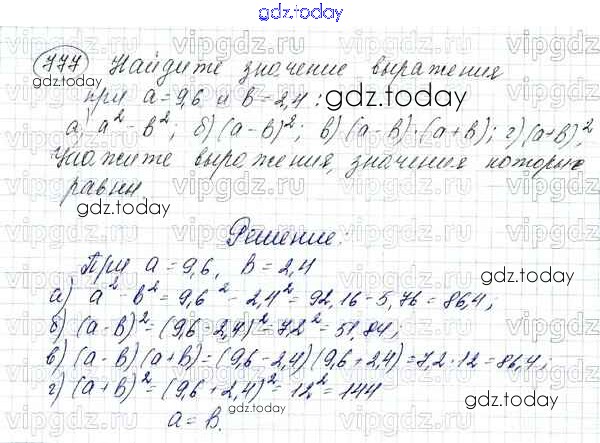 gdz.today
777 Найдите значение выражения
при a = 9,6 и в = 2,4 :
а) a² - в²; б) (a - в)²; в) (a - в)·(a + в); г) (a + в)².
Укажите выражения, значения которых
равны
Решение:
При a = 9,6, в = 2,4
а) a² - в² = 9,6² - 2,4² = 92,16 - 5,76 = 86,4;
б) (a - в)² = (9,6 - 2,4)² = 7,2² = 51,84;
в) (a - в)(a + в) = (9,6 - 2,4)(9,6 + 2,4) = 7,2·12 = 86,4;
г) (a + в)² = (9,6 + 2,4)² = 12² = 144
а = в.
gdz.today
gdz.today
gdz.today
gdz.today
gdz.today
vipgdz.ru